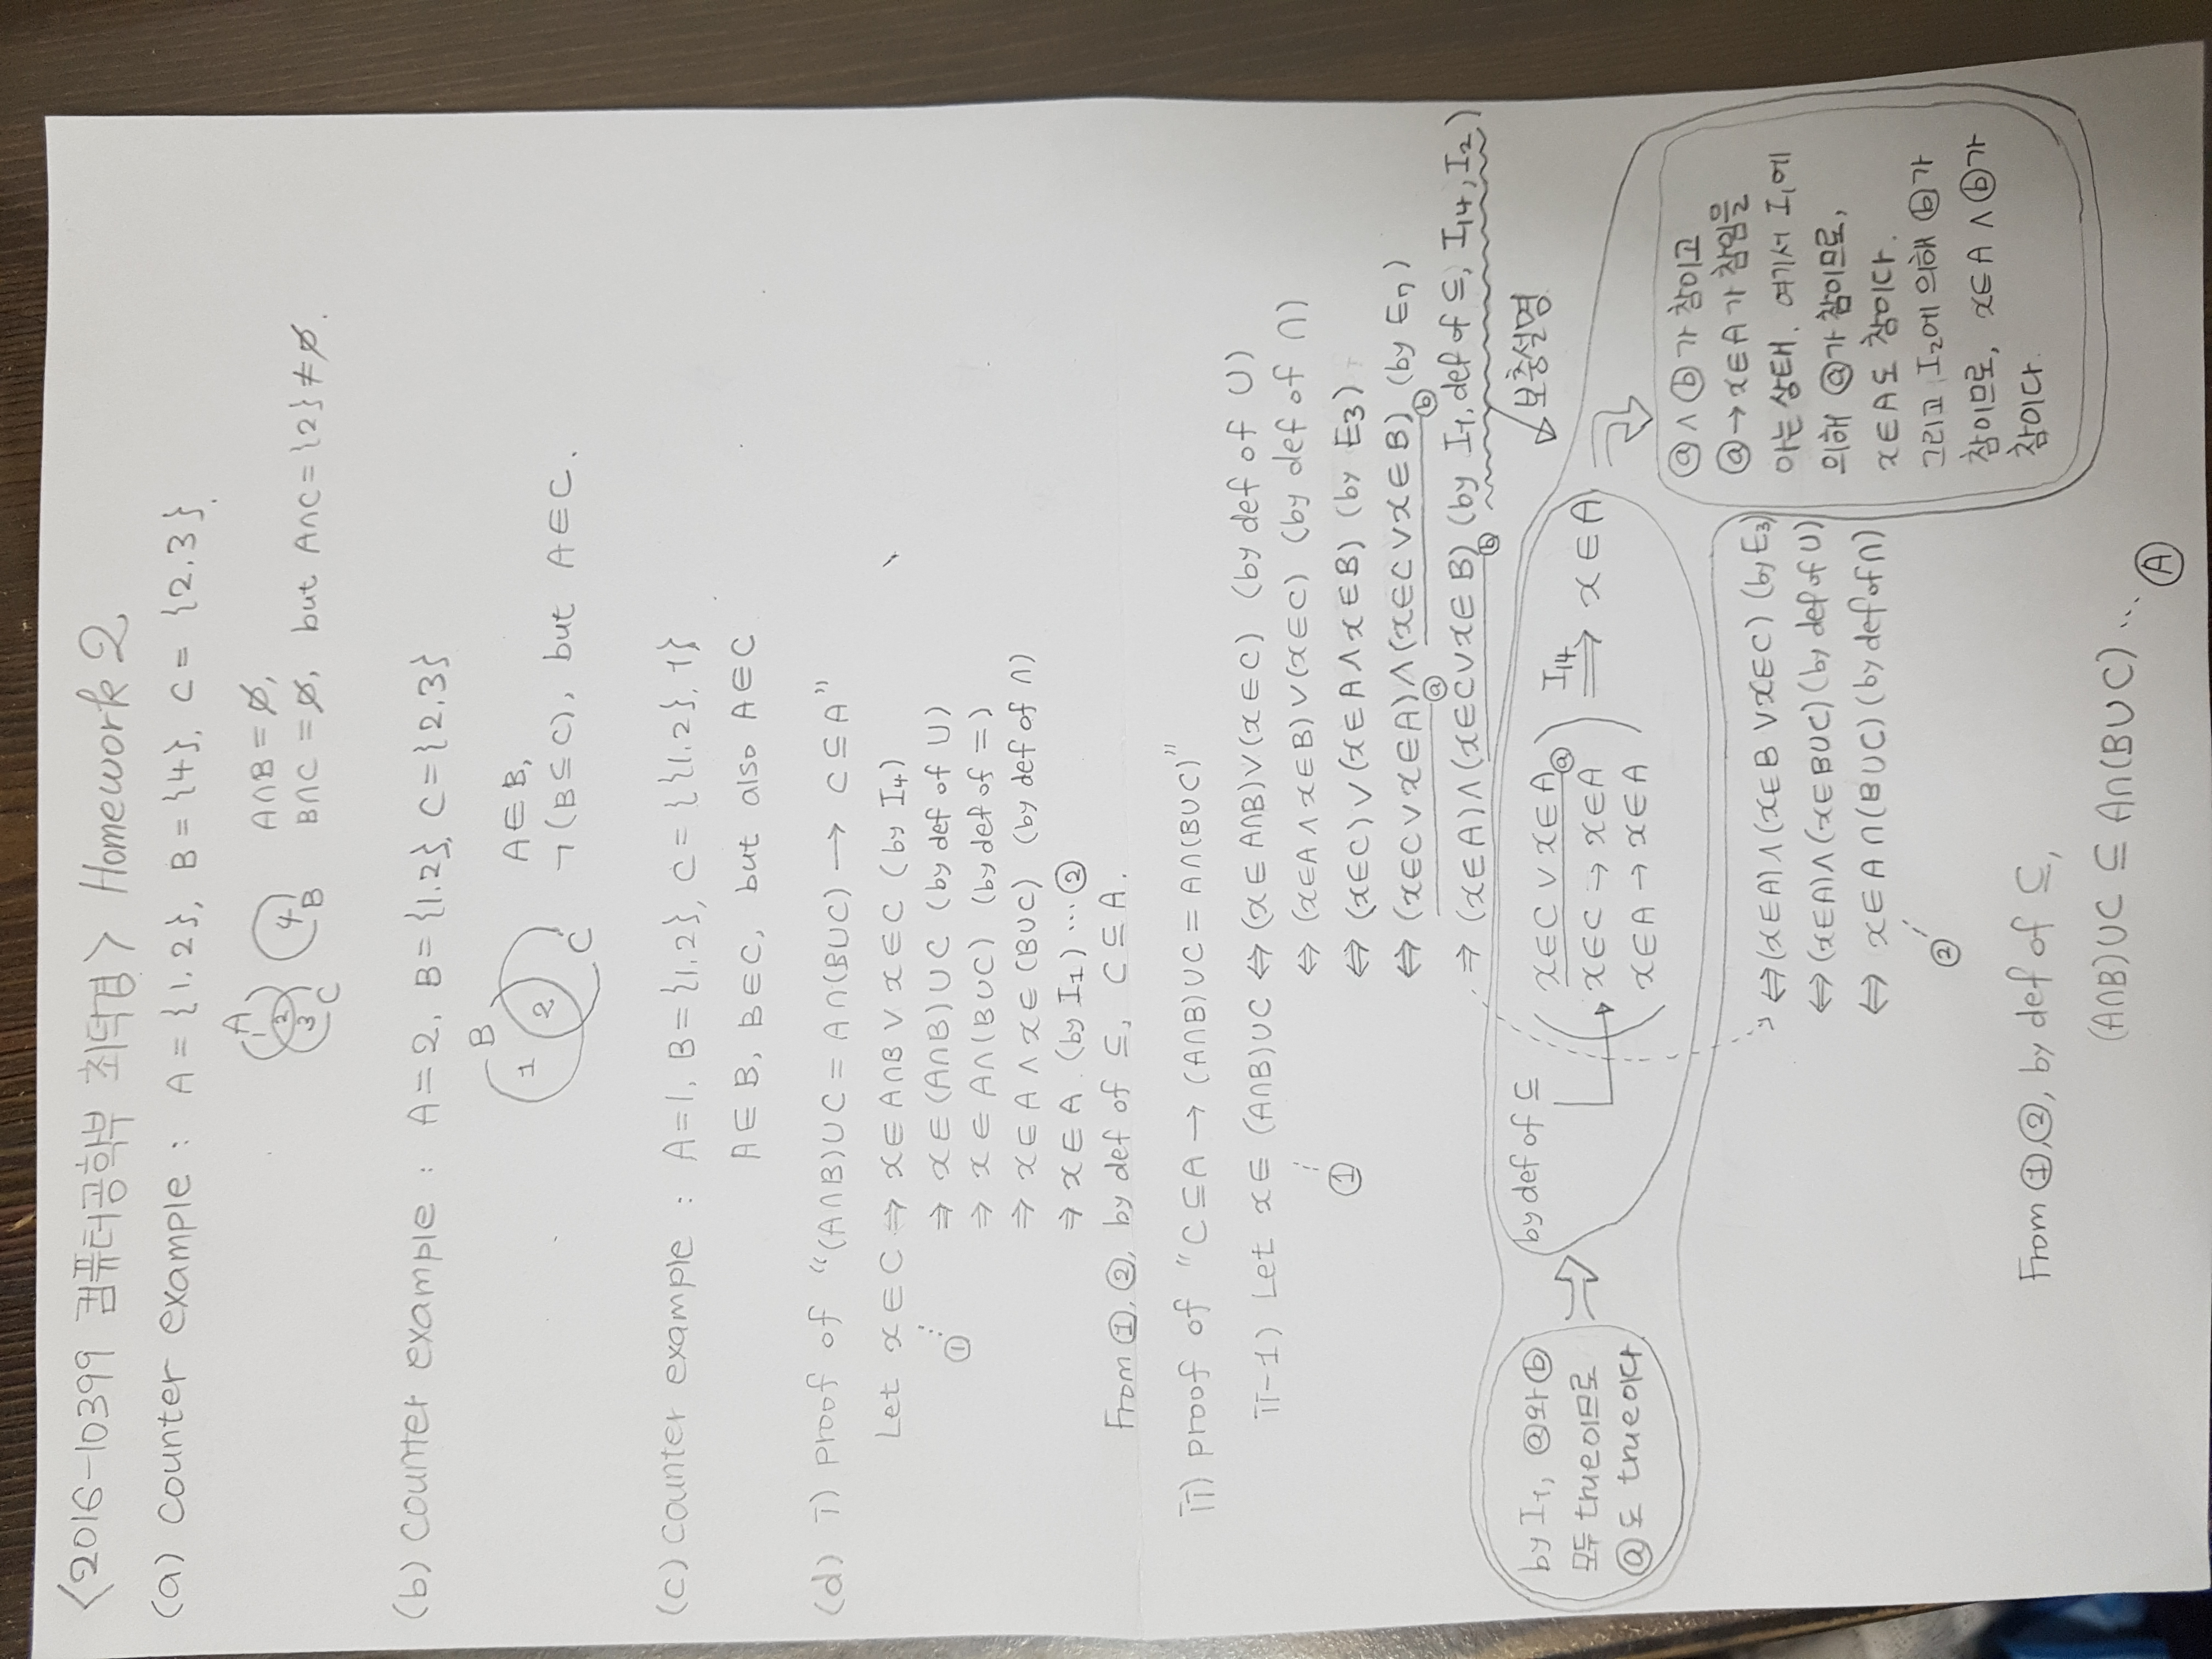 <2016-10399 컴퓨터공학부 최덕경> Homework 2
(a) counter example : A = {1.2}, B = {4}, C = {2.3}.
A
1
2
3
C
4
B
A∩B = ∅,
B∩C = ∅, but A∩C = {2} ≠ ∅.
(b) counter example : A = 2, B = {1.2}, C = {2.3}
B
1
2
C
A∈B,
¬(B⊆C), but A∈C.
(c) counter example : A=1, B={1.2}, C={{1.2}, 1}
A∈B, B∈C, but also A∈C
(d) i) proof of "(A∩B)∪C = A∩(B∪C) → C⊆A"
Let x∈C ⇒ x∈A∩B ∨ x∈C (by I4)
①
⇒ x∈(A∩B)∪C (by def of ∪)
⇒ x∈A∩(B∪C) (by def of =)
⇒ x∈A ∧ x∈(B∪C) (by def of ∩)
⇒ x∈A. (by I1) ... ②
From ①, ②, by def of ⊆, C⊆A.
ii) proof of "C⊆A → (A∩B)∪C = A∩(B∪C)"
ii-1) Let x∈(A∩B)∪C ⇔ (x∈A∩B)∨(x∈C) (by def of ∪)
①
⇔ (x∈A∧x∈B)∨(x∈C) (by def of ∩)
⇔ (x∈C)∨(x∈A∧x∈B) (by E3)
⇔ (x∈C∨x∈A)ⓐ∧(x∈C∨x∈B)ⓑ (by E7)
⇒ (x∈A)∧(x∈C∨x∈B)ⓑ (by I1, def of ⊆, I14, I2)
보충설명
by I1, ⓐ와 ⓑ
모두 true이므로
ⓐ도 true이다
by def of ⊆
x∈C ∨ x∈A ⓐ
x∈C → x∈A
x∈A → x∈A
I14
⇒ x∈A
ⓐ∧ⓑ가 참이고
ⓐ→x∈A가 참임을
아는 상태. 여기서 I1에
의해 ⓐ가 참이므로,
x∈A도 참이다.
그리고 I2에 의해 ⓑ가
참이므로, x∈A ∧ ⓑ가
참이다.
⇔(x∈A)∧(x∈B ∨x∈C) (by E3)
⇔(x∈A)∧(x∈B∪C) (by def of ∪)
⇔ x∈A∩(B∪C) (by def of ∩)
②
From ①,②, by def of ⊆,
(A∩B)∪C ⊆ A∩(B∪C) ...
Ⓐ